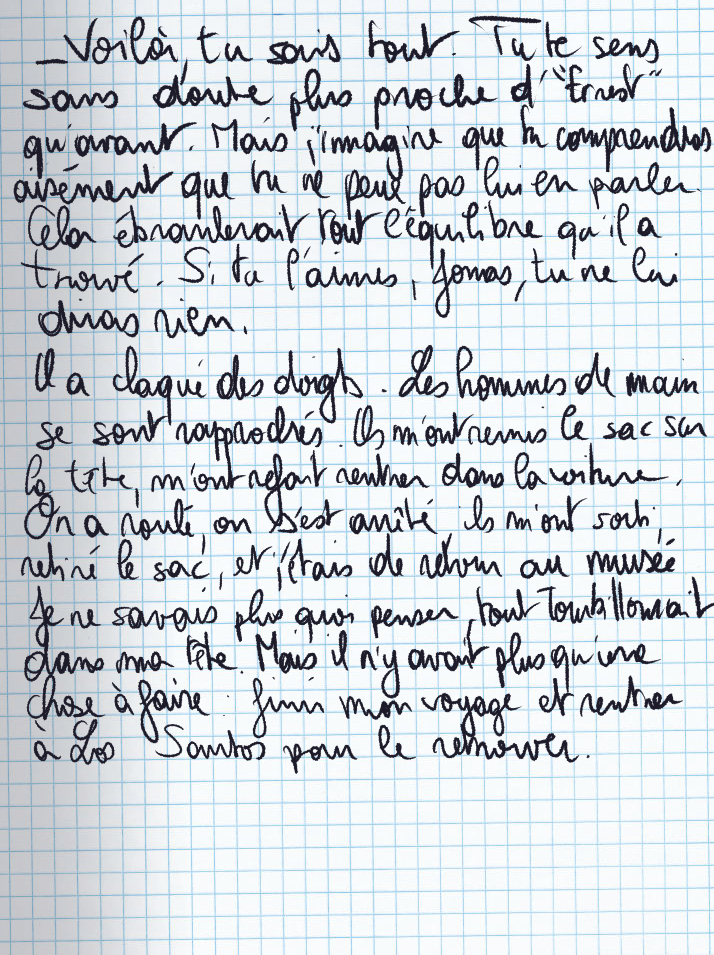 _ Voilà, tu sais tout. Tu te sens
sans doute plus proche d'"Ernest"
qu'avant. Mais j'imagine que tu comprendras
aisément que tu ne peux pas lui en parler.
Cela ébranlerait tout l'équilibre qu'il a
trouvé. Si tu l'aimes, Jonas, tu ne lui
diras rien.
Il a claqué des doigts. Les hommes de main
se sont rapprochés. Ils m'ont remis le sac sur
la tête, m'ont refait rentrer dans la voiture.
On a roulé, on s'est arrêté, ils m'ont sorti,
retiré le sac, et j'étais de retour au musée
Je ne savais plus quoi penser, tout tourbillonnait
dans ma tête. Mais il n'y avait plus qu'une
chose à faire : finir mon voyage et rentrer
à Los Santos pour le retrouver.